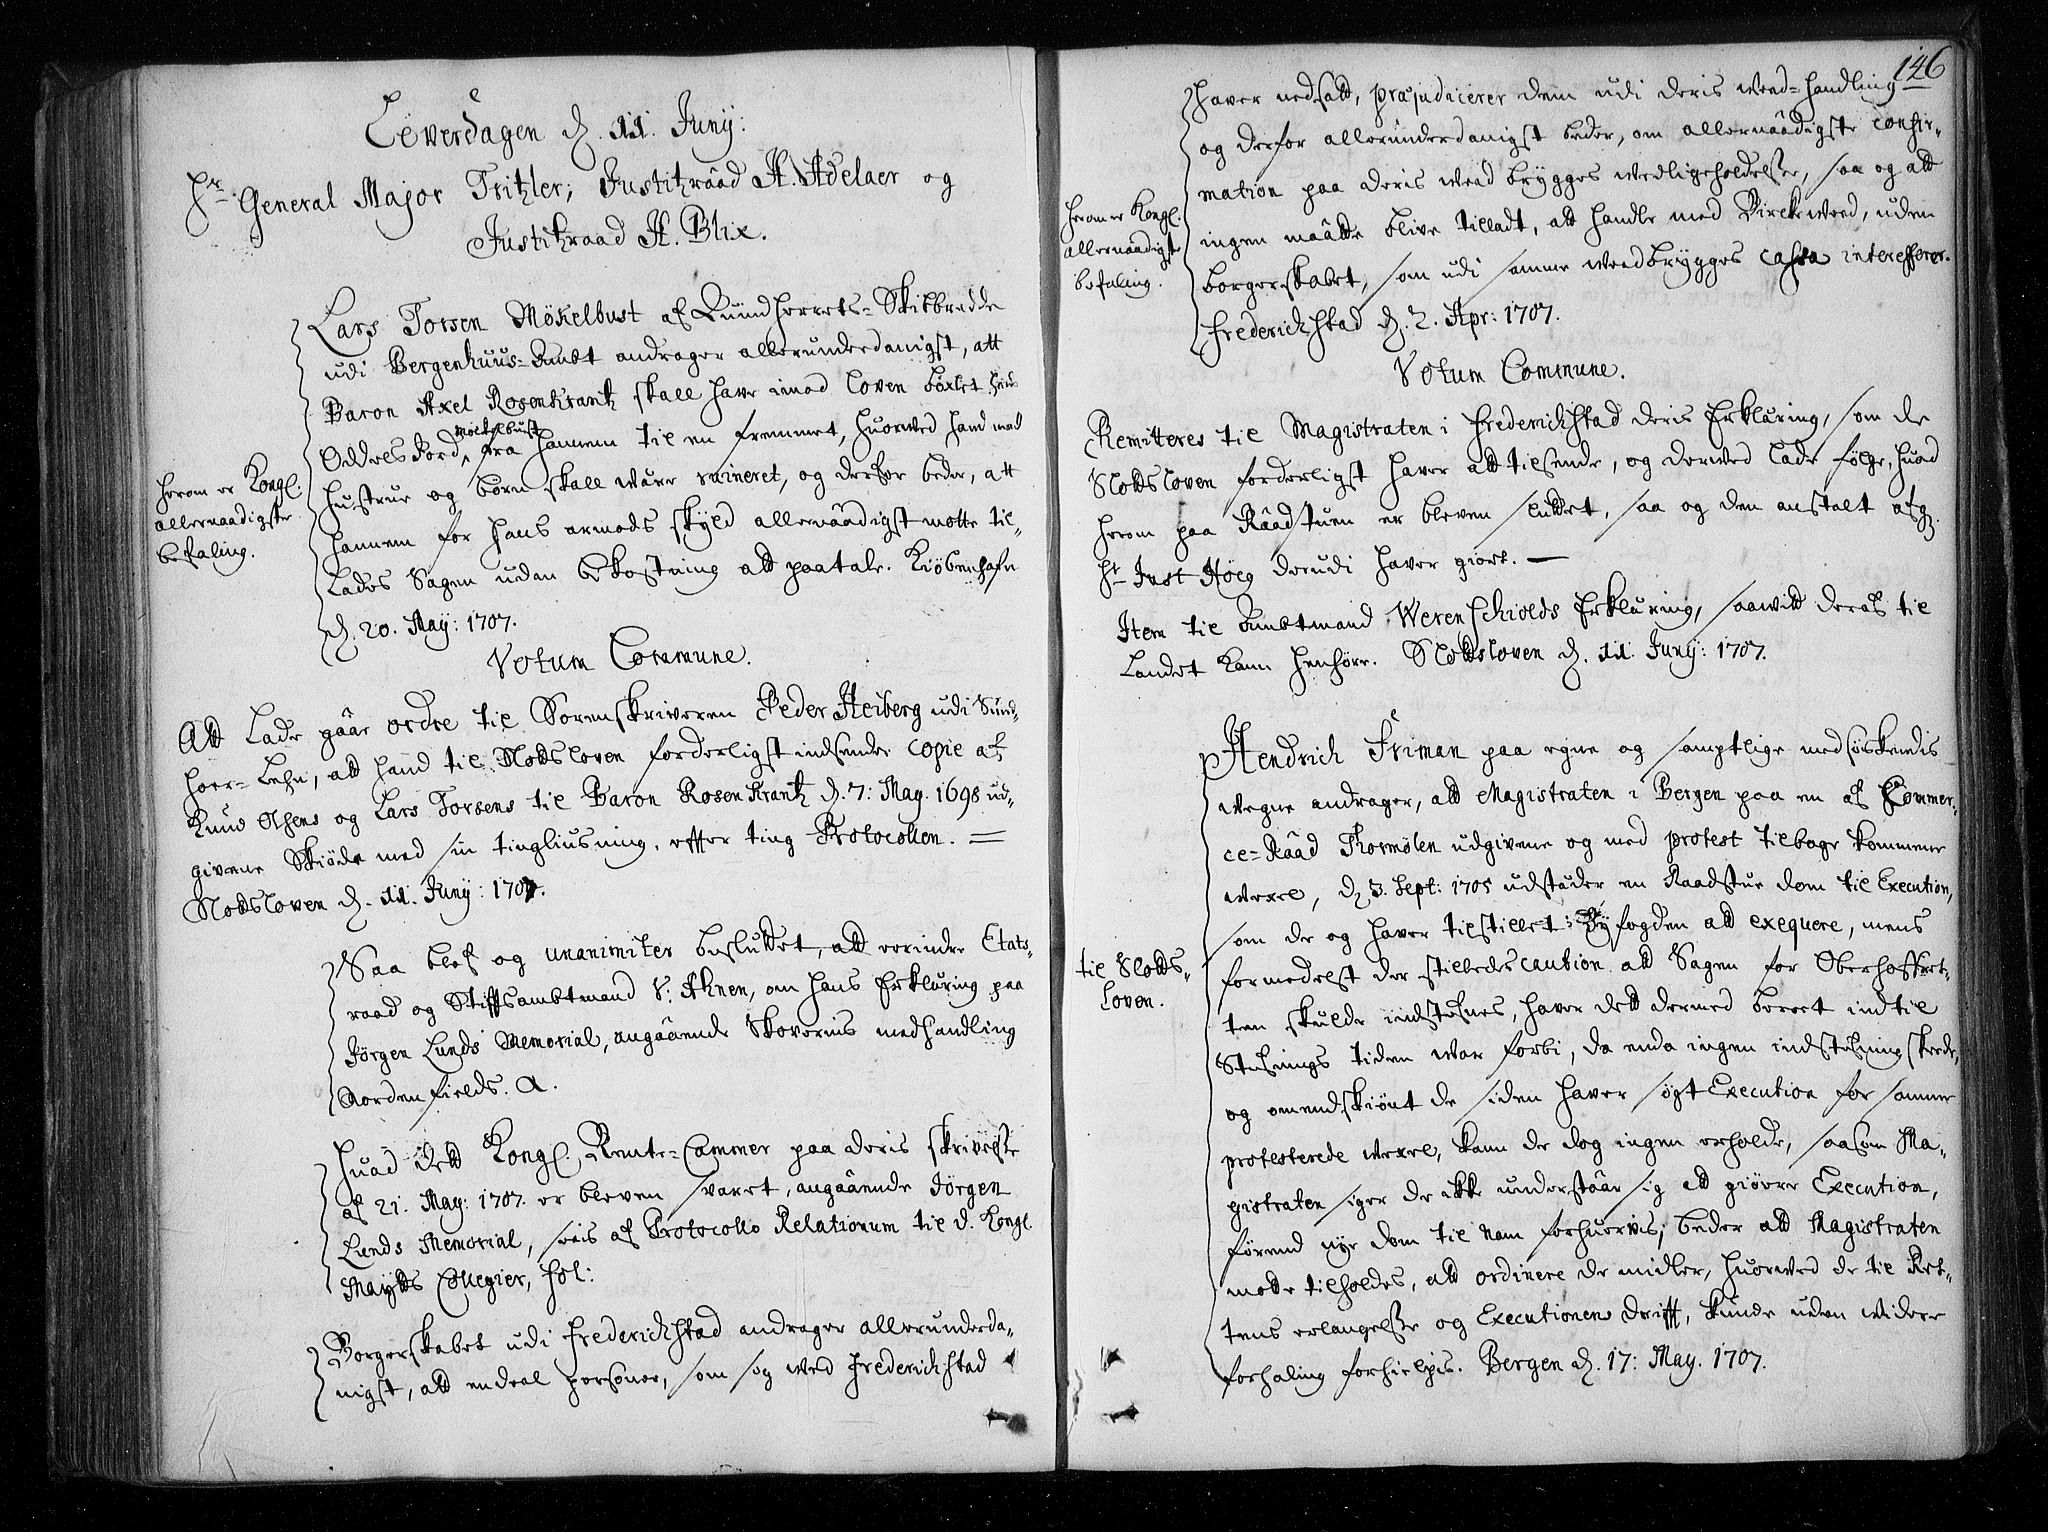 Löverdagen d. 11. Junij:
Hr. General Major Tritzler, Justitzraad H. Adelaer og
Justitzraad H. Blix.
Lars Torsen Mökelbust af Sundherrets-Skibbredde
udi Bergenhuus-Ambt andrager allerunderdanigst, att
Baron Axel Rosenkrantz skall have imod Loven böxlet hans
Oddelsjord, Möckelbust fra hannem til en fremmet, huorved hand med
hustrue og börn skall være ruineret, og derfor beder, att
hannem for hans armods skyld allernaadigst motte til-
lades Sagen uden Bekostning att paatale. Kiöbenhafn
d. 20. May: 1707.
herom er Kongl:
allernaadigste
befaling.
Votum Commune.
Att lade gaar ordre til Sorenskriveren Peder Heiberg udi Sund-
hoer-Lehn, att hand til Slottsloven forderligst indsender copie af
Knud Olsens og Lars Torsens til Baron Rosenkrantz d. 7: May. 1698 ud-
givene Skiöde med sin tingliusning, effter ting Protocollen. =
Slottsloven d. 11. Junij: 1707.
Saa blef og unanimiter besluttet, att erindre Etats-
raad og Stiftsambtmand V: Ahnen, om hans Erklæring paa
Jörgen Lunds Memorial, angaaende Skovernis medhandling
Nordenfields. a.
Huad dett Kongl. Rente-Cammer paa deris skrivelse
af 21. May: 1707. er bleven svaret, angaaende Jörgen
Lunds Memorial, sees af Protocollo Relationum til d. Kongl.
Maytts Collegier, fol:
Borgerskabet udi Frederichstad andrager allerunderda-
nigst, att endeel personer, som sig ved Frederichstad
146
haver nedsatt, præjudicerer dem udi deris veed-handling
og derfor allerunderdanigst beder, om allernaadigste confir-
mation paa deris veed brygges vedligeholdelse, saa og att
ingen maatte blive tilladt, att handle med Bircke veed, uden
borgerskabet, som udi samme veedbrygges cassa interesserer.
Frederichstad d. 2. Apr: 1707.
herom er Kongl:
allernaadigste
befaling.
Votum Commune.
Remitteres til Magistraten i Frederichstad deris Erklæring, som de
Slottsloven forderligst haver att tilsende, og derved lade fölge, huad
herom paa Raadstuen er bleven sluttet, saa og den anstalt afg.
Hr. Just Höeg derudi haver giort. —
Item til Ambtmand Werenschiolds Erklæring, saavitt deraf til
Landet kann henhöre. Slottsloven d. 11. Junij: 1707.
Hendrich Friman paa egne og samptlige medsöskendis
vegne andrager, att Magistraten i Bergen paa en af Commer-
ce-Raad Thormölen udgivene og med protest tilbage kommene
vexel, d. 3. Sept: 1705 udstæder en Raadstue dom til Execution,
som de og haver tilstillet Byfogden att exequere, mens
formedelst der stilledes caution att Sagen for Oberhoffret-
ten skulde indstefnes, haver dett dermed beroet indtil
Stefnings tiden var forbi, da enda ingen indstefning skeede,
og omendskiönt de siden haver sögt Execution for samme
protesterede vexel, kann de dog ingen erholde, saasom Ma-
gistraten siger de icke understaar sig at giöre Execution,
förend nye dom til Nam forhuervis; beder att Magistraten
motte tilholdes, att ordinere de midler, huorved de til Ret-
tens erlangelse og Executionens drifft, kunde uden videre
forhaling forhielpis. Bergen d. 17: May. 1707.
til Slotts-
loven.